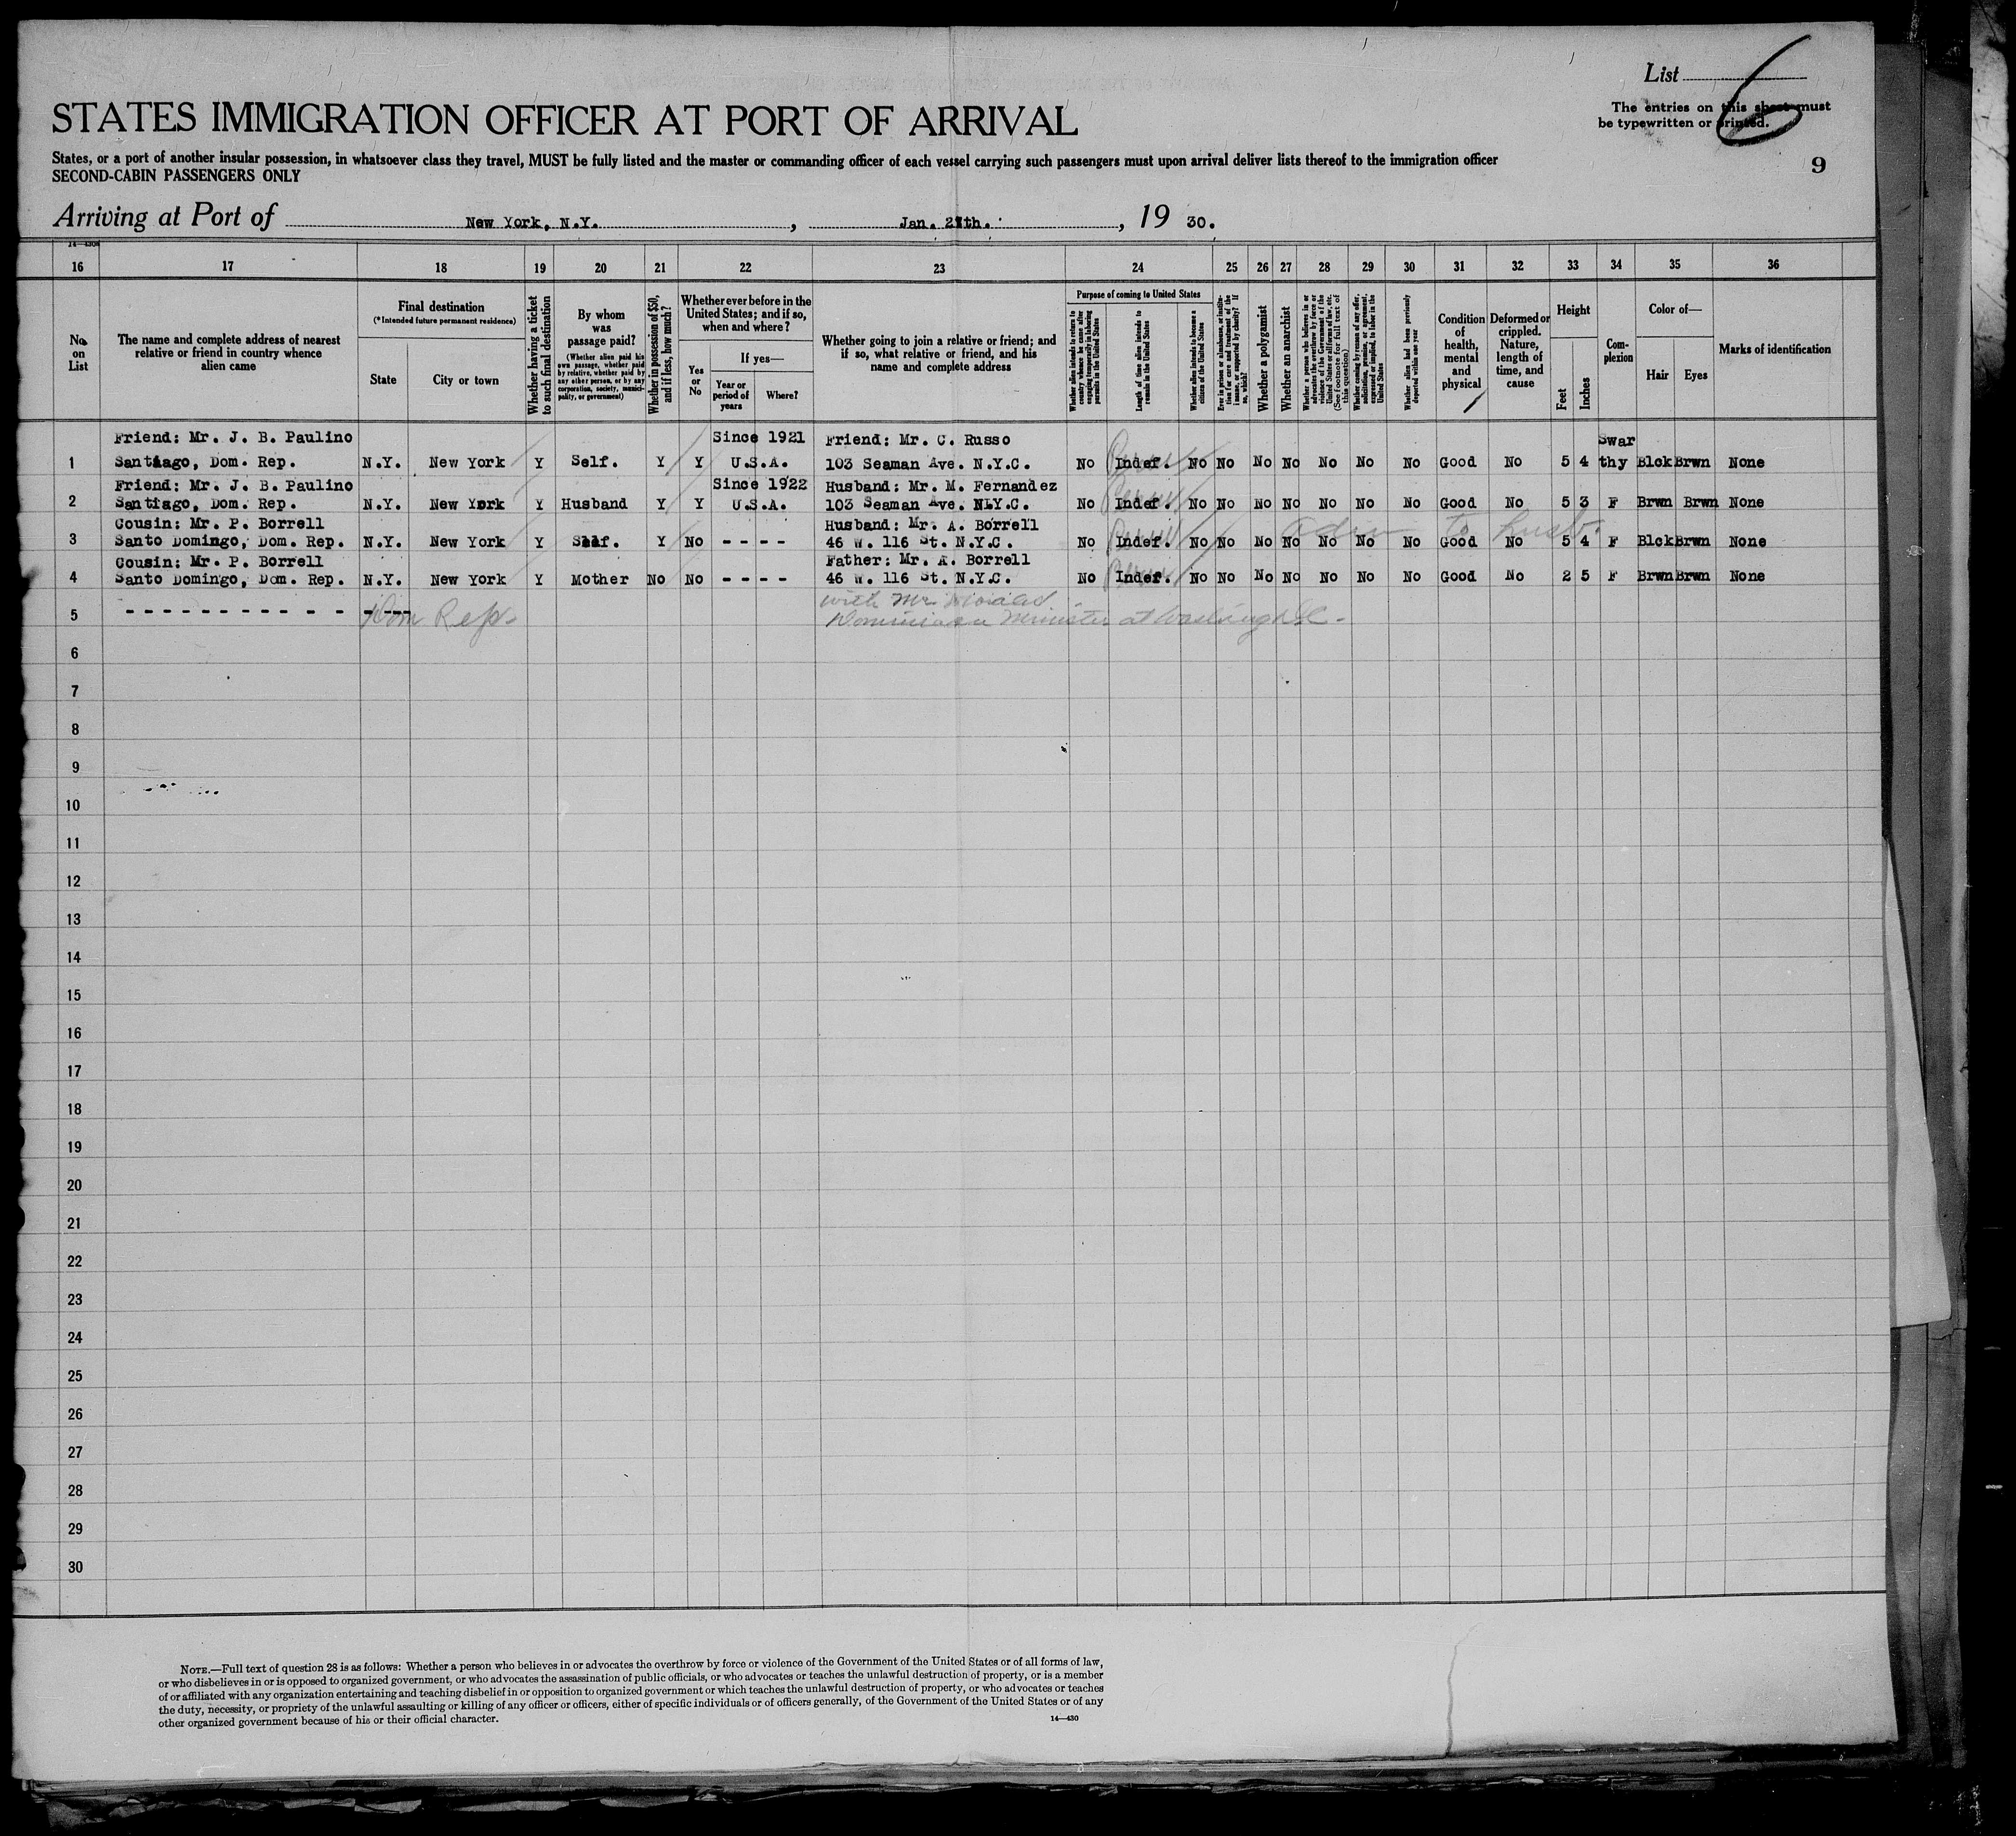 List 6
The entries on this sheet must
be typewritten or printed.
STATES IMMIGRATION OFFICER AT PORT OF ARRIVAL
States, or a port of another insular possession, in whatsoever class they travel, MUST be fully listed and the master or commanding officer of each vessel carrying such passengers must upon arrival deliver lists thereof to the immigration officer
SECOND-CABIN PASSENGERS ONLY
9
Arriving at Port of New York, N.Y. , Jan. 27th. , 19 30.
14—430
16 17 18 19 20 21 22 23 24 25 26 27 28 29 30 31 32 33 34 35 36
No. on List
The name and complete address of nearest relative or friend in country whence alien came
Final destination
(*Intended future permanent residence)
State
City or town
Whether having a ticket to such final destination
By whom was passage paid?
(Whether alien paid his own passage, whether paid by relative, whether paid by any other person, or by any corporation, society, municipality, or government)
Whether in possession of $50, and if less, how much?
Whether ever before in the United States; and if so, when and where?
Yes or No
If yes—
Year or period of years
Where?
Whether going to join a relative or friend; and if so, what relative or friend, and his name and complete address
Purpose of coming to United States
Whether alien intends to return to country whence he came after engaging temporarily in laboring pursuits in the United States
Length of time alien intends to remain in the United States
Whether alien intends to become a citizen of the United States
Ever in prison or almshouse, or institution for care and treatment of the insane, or supported by charity? If so, which?
Whether a polygamist
Whether an anarchist
Whether a person who believes in or advocates the overthrow by force or violence of the Government of the United States or all forms of law, etc. (See footnote for full text of this question)
Whether coming by reason of any offer, solicitation, promise, or agreement, expressed or implied, to labor in the United States
Whether alien had been previously deported within one year
Condition of health, mental and physical
Deformed or crippled. Nature, length of time, and cause
Height
Feet
Inches
Complexion
Color of—
Hair
Eyes
Marks of identification
Friend: Mr. J. B. Paulino Since 1921 Friend: Mr. C. Russo Swar
1 Santiago, Dom. Rep. N.Y. New York Y Self. Y Y U.S.A. 103 Seaman Ave. N.Y.C. No Indef. No No No No No No No Good No 5 4 thy Blck Brwn None
Friend: Mr. J. B. Paulino Since 1922 Husband: Mr. M. Fernandez
2 Santiago, Dom. Rep. N.Y. New York Y Husband Y Y U.S.A. 103 Seaman Ave. N.Y.C. No Indef. No No No No No No No Good No 5 3 F Brwn Brwn None
Cousin: Mr. P. Borrell Husband: Mr. A. Borrell
3 Santo Domingo, Dom. Rep. N.Y. New York Y Self. Y No - - - - 46 W. 116 St. N.Y.C. No Indef. No No No No No No No Good No 5 4 F Blck Brwn None
to husb.
Cousin: Mr. P. Borrell Father: Mr. A. Borrell
4 Santo Domingo, Dom. Rep. N.Y. New York Y Mother No No - - - - 46 W. 116 St. N.Y.C. No Indef. No No No No No No No Good No 2 5 F Brwn Brwn None
with Mr.
5 - - - - - - - - - - - - - - Dom Rep. Dominican Minister at
6
7
8
9
10
11
12
13
14
15
16
17
18
19
20
21
22
23
24
25
26
27
28
29
30
NOTE.—Full text of question 28 is as follows: Whether a person who believes in or advocates the overthrow by force or violence of the Government of the United States or of all forms of law,
or who disbelieves in or is opposed to organized government, or who advocates the assassination of public officials, or who advocates or teaches the unlawful destruction of property, or is a member
of or affiliated with any organization entertaining and teaching disbelief in or opposition to organized government or which teaches the unlawful destruction of property, or who advocates or teaches
the duty, necessity, or propriety of the unlawful assaulting or killing of any officer or officers, either of specific individuals or of officers generally, of the Government of the United States or of any
other organized government because of his or their official character.
14—430